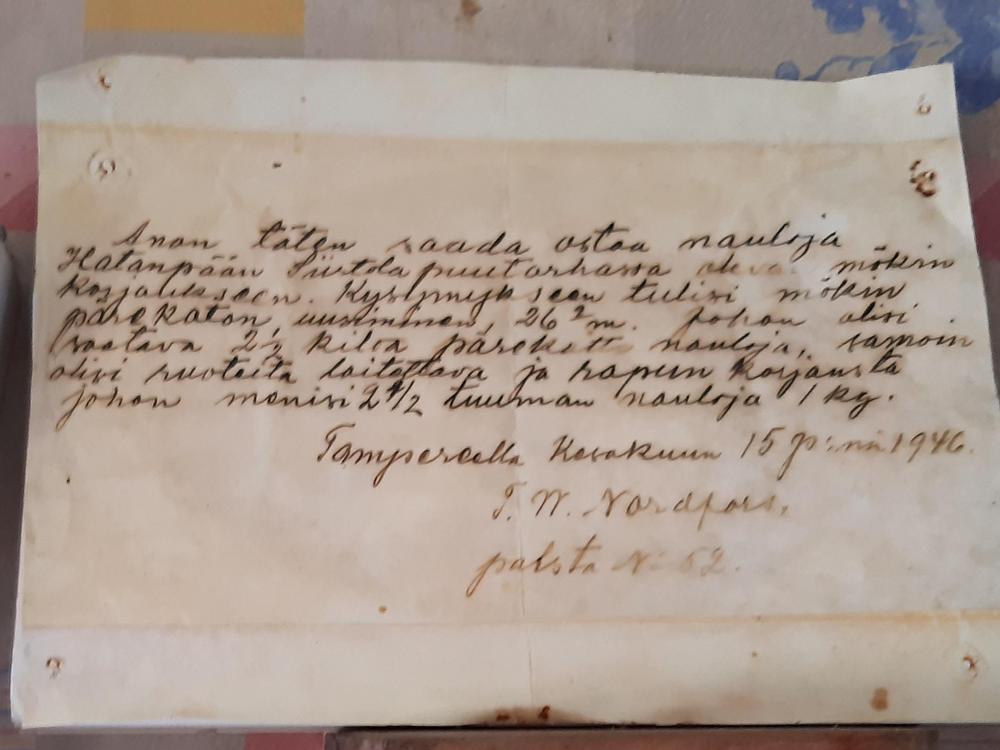 Anon täten saada ostaa nauloja
Hatanpään Siirtolapuutarhassa oleva mökin
korjaukseen. Kysymykseen tulisi mökin
pärekaton, uusiminen, 26 ²m. johon olisi
saatava 2½ kiloa pärekatto nauloja, samoin
olisi ruoteita laitettava ja rapun korjausta
johon menisi 2 1/2 tuuman nauloja 1 kg.
Tampereella Kesäkuun 15 p:nä 1946.
T. W. Nordfors,
palsta N: 52.